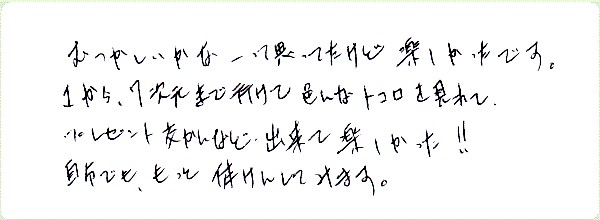 むつかしいかなーって思ってたけど楽しかったです。
1から、7次元まで行けて色んなトコロを見れて、
プレゼント交かんなど出来て楽しかった!!
自分でも、もっと体けんしてみます。